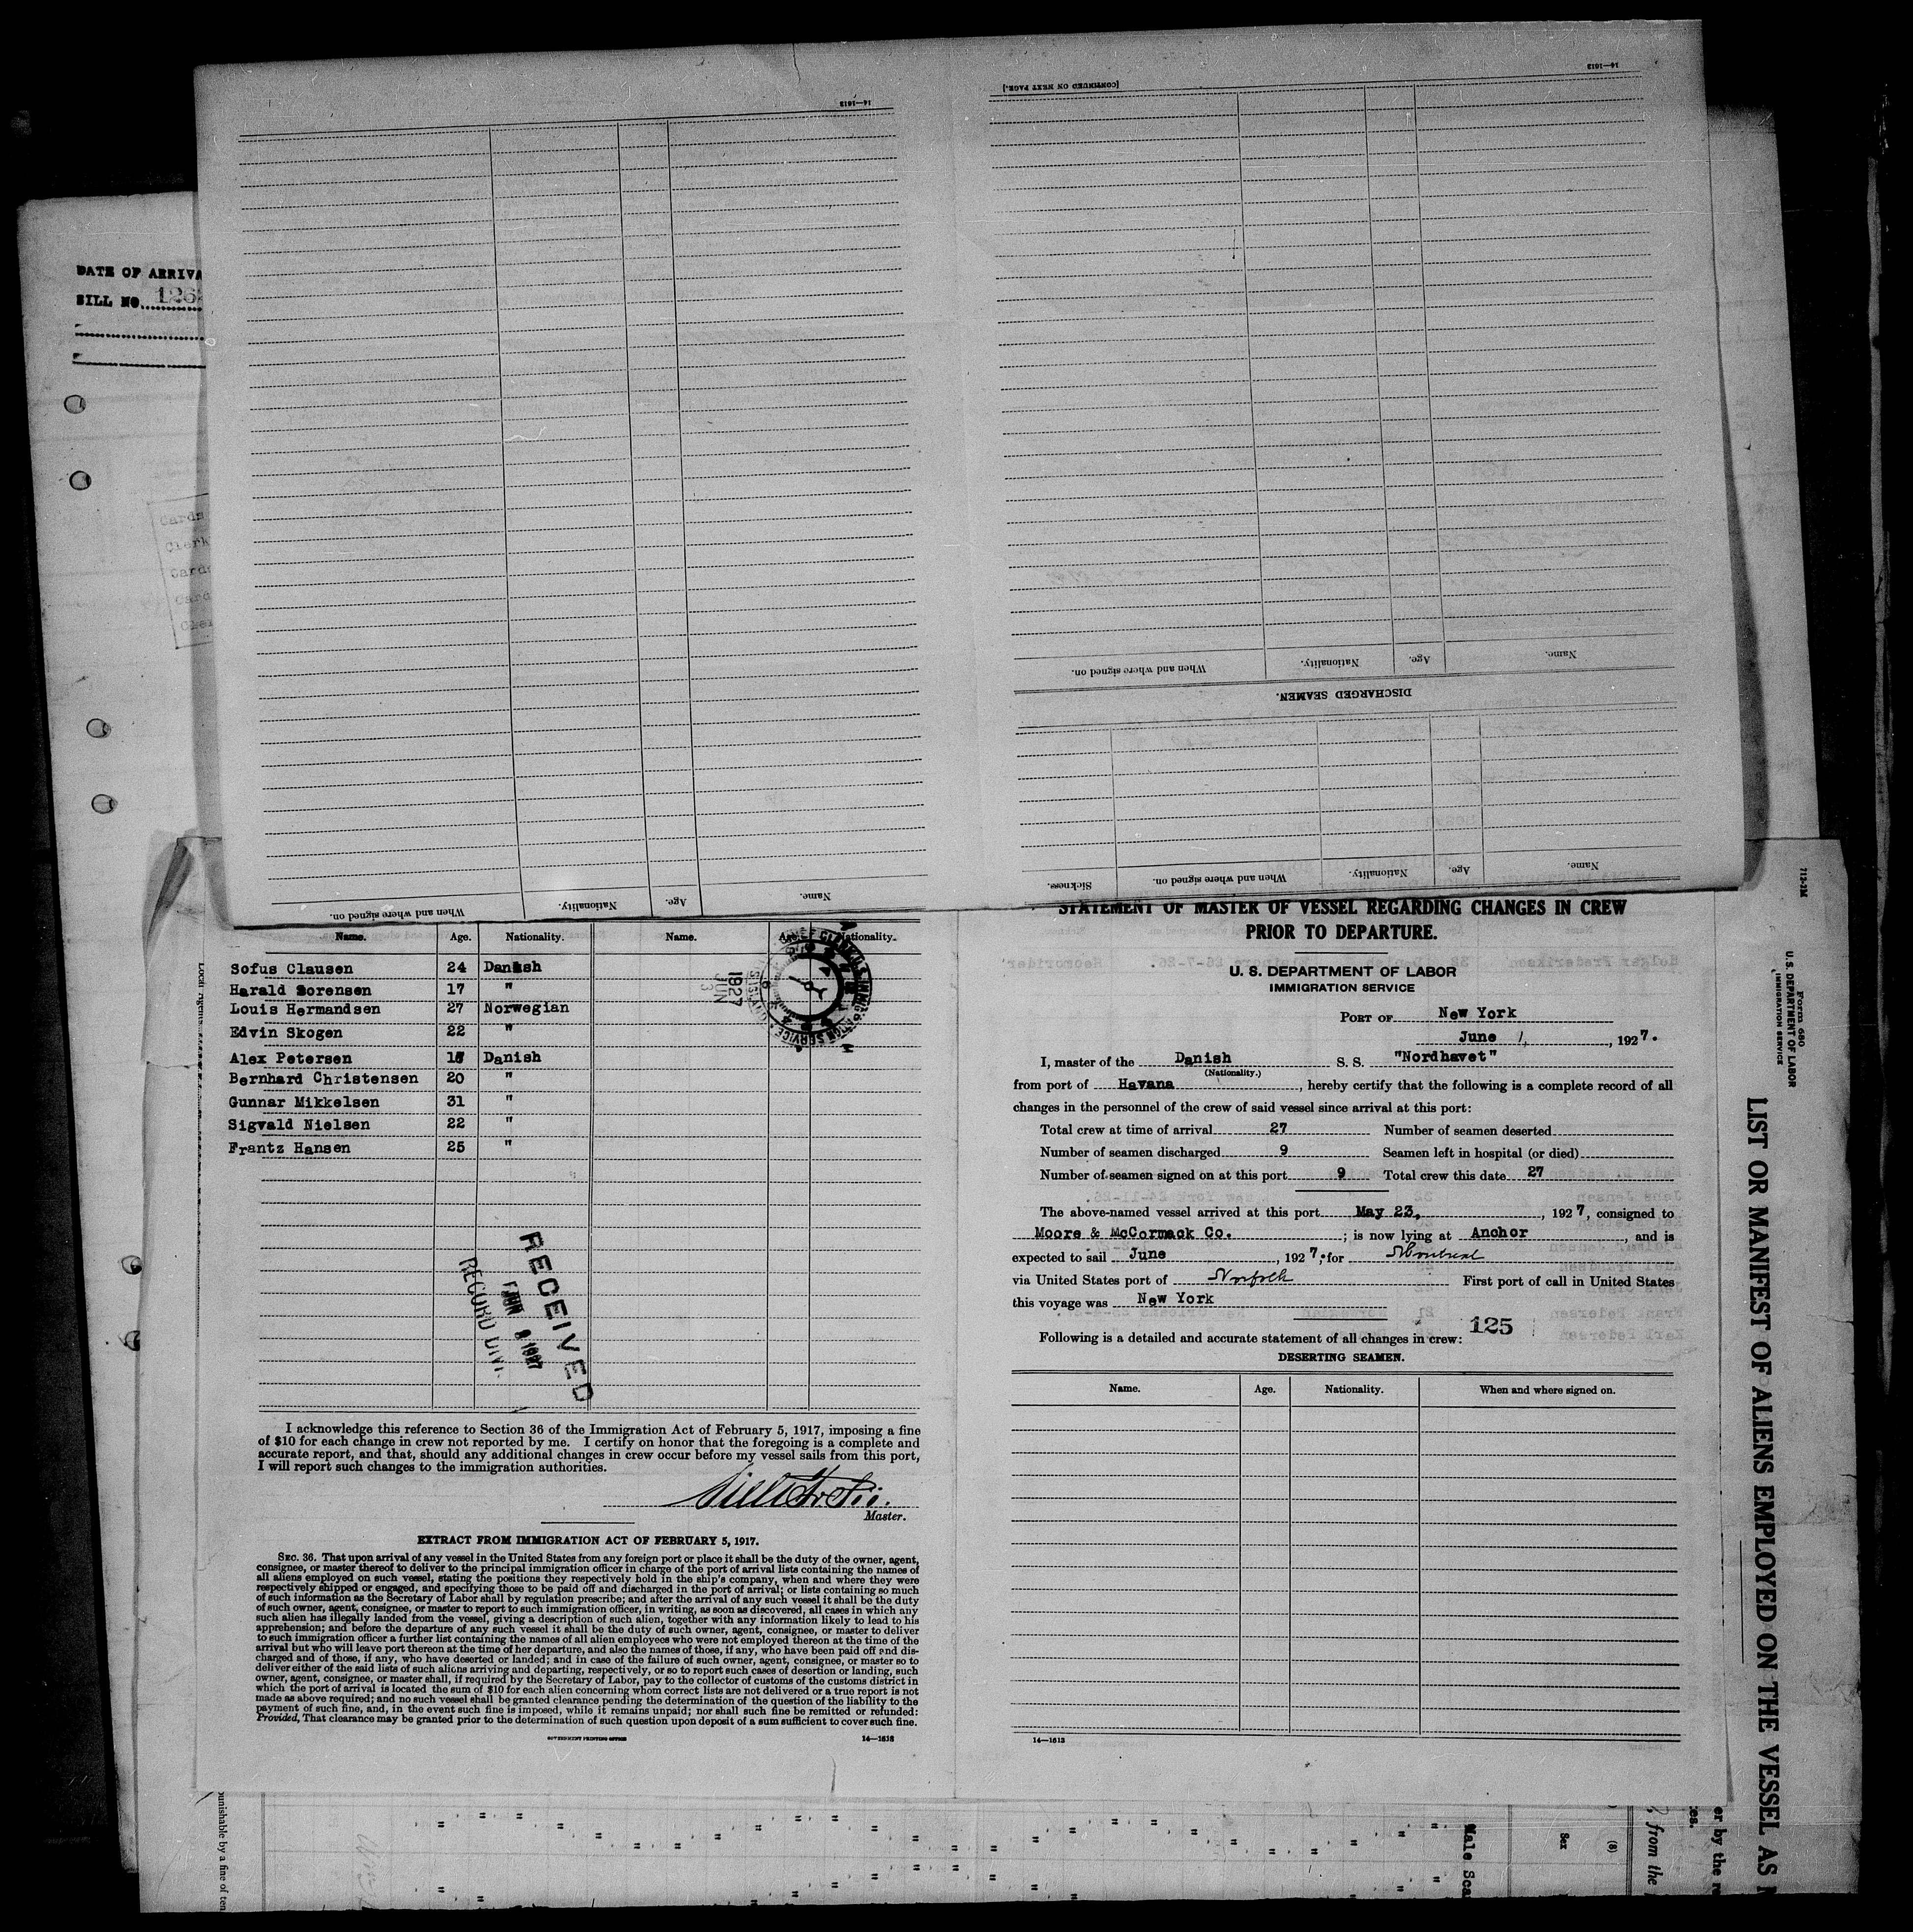 14—1613
[CONTINUED ON NEXT PAGE.]
14—1613
When and where signed on.
Nationality.
Age.
Name.
DISCHARGED SEAMEN.
Sickness.
When and where signed on.
Nationality.
Age.
Name.
When and where signed on.
Nationality.
Age.
Name.
DATE OF ARRIVA
BILL NO. 126
Cards
Clerk
Cards
Card
Name. Age. Nationality. Name. Age. Nationality.
Sofus Clausen 24 Danish
Harald Sorensen 17 "
Louis Hermandsen 27 Norwegian
Edvin Skogen 22 "
Alex Petersen 18 Danish
Bernhard Christensen 20 "
Gunnar Mikkelsen 31 "
Sigvald Nielsen 22 "
Frantz Hansen 25 "
1927
JUN
3
RECEIVED
JUN 8 1927
RECORD DIV.
I acknowledge this reference to Section 36 of the Immigration Act of February 5, 1917, imposing a fine
of $10 for each change in crew not reported by me. I certify on honor that the foregoing is a complete and
accurate report, and that, should any additional changes in crew occur before my vessel sails from this port,
I will report such changes to the immigration authorities.
Master.
EXTRACT FROM IMMIGRATION ACT OF FEBRUARY 5, 1917.
SEC. 36. That upon arrival of any vessel in the United States from any foreign port or place it shall be the duty of the owner, agent,
consignee, or master thereof to deliver to the principal immigration officer in charge of the port of arrival lists containing the names of
all aliens employed on such vessel, stating the positions they respectively hold in the ship's company, when and where they were
respectively shipped or engaged, and specifying those to be paid off and discharged in the port of arrival; or lists containing so much
of such information as the Secretary of Labor shall by regulation prescribe; and after the arrival of any such vessel it shall be the duty
of such owner, agent, consignee, or master to report to such immigration officer, in writing, as soon as discovered, all cases in which any
such alien has illegally landed from the vessel, giving a description of such alien, together with any information likely to lead to his
apprehension; and before the departure of any such vessel it shall be the duty of such owner, agent, consignee, or master to deliver
to such immigration officer a further list containing the names of all alien employees who were not employed thereon at the time of the
arrival but who will leave port thereon at the time of her departure, and also the names of those, if any, who have been paid off and dis-
charged and of those, if any, who have deserted or landed; and in case of the failure of such owner, agent, consignee, or master so to
deliver either of the said lists of such aliens arriving and departing, respectively, or so to report such cases of desertion or landing, such
owner, agent, consignee, or master shall, if required by the Secretary of Labor, pay to the collector of customs of the customs district in
which the port of arrival is located the sum of $10 for each alien concerning whom correct lists are not delivered or a true report is not
made as above required; and no such vessel shall be granted clearance pending the determination of the question of the liability to the
payment of such fine, and, in the event such fine is imposed, while it remains unpaid; nor shall such fine be remitted or refunded:
Provided, That clearance may be granted prior to the determination of such question upon deposit of a sum sufficient to cover such fine.
GOVERNMENT PRINTING OFFICE 14—1613
STATEMENT OF MASTER OF VESSEL REGARDING CHANGES IN CREW
PRIOR TO DEPARTURE.
U. S. DEPARTMENT OF LABOR
IMMIGRATION SERVICE
PORT OF New York
June 1, 1927.
I, master of the Danish S. S. "Nordhavet"
(Nationality.)
from port of Havana, hereby certify that the following is a complete record of all
changes in the personnel of the crew of said vessel since arrival at this port:
Total crew at time of arrival 27 Number of seamen deserted
Number of seamen discharged 9 Seamen left in hospital (or died)
Number of seamen signed on at this port 9 Total crew this date 27
The above-named vessel arrived at this port May 23, 1927, consigned to
Moore & McCormack Co.; is now lying at Anchor, and is
expected to sail June, 1927; for Montreal
via United States port of Norfolk First port of call in United States
this voyage was New York
125
Following is a detailed and accurate statement of all changes in crew:
DESERTING SEAMEN.
Name. Age. Nationality. When and where signed on.
14—1613
712-2M
Form 680
U. S. DEPARTMENT OF LABOR
IMMIGRATION SERVICE
LIST OR MANIFEST OF ALIENS EMPLOYED ON THE VESSEL AS
er by the re
from the
(8)
Sex
Male Sca
punishable by a fine of ten